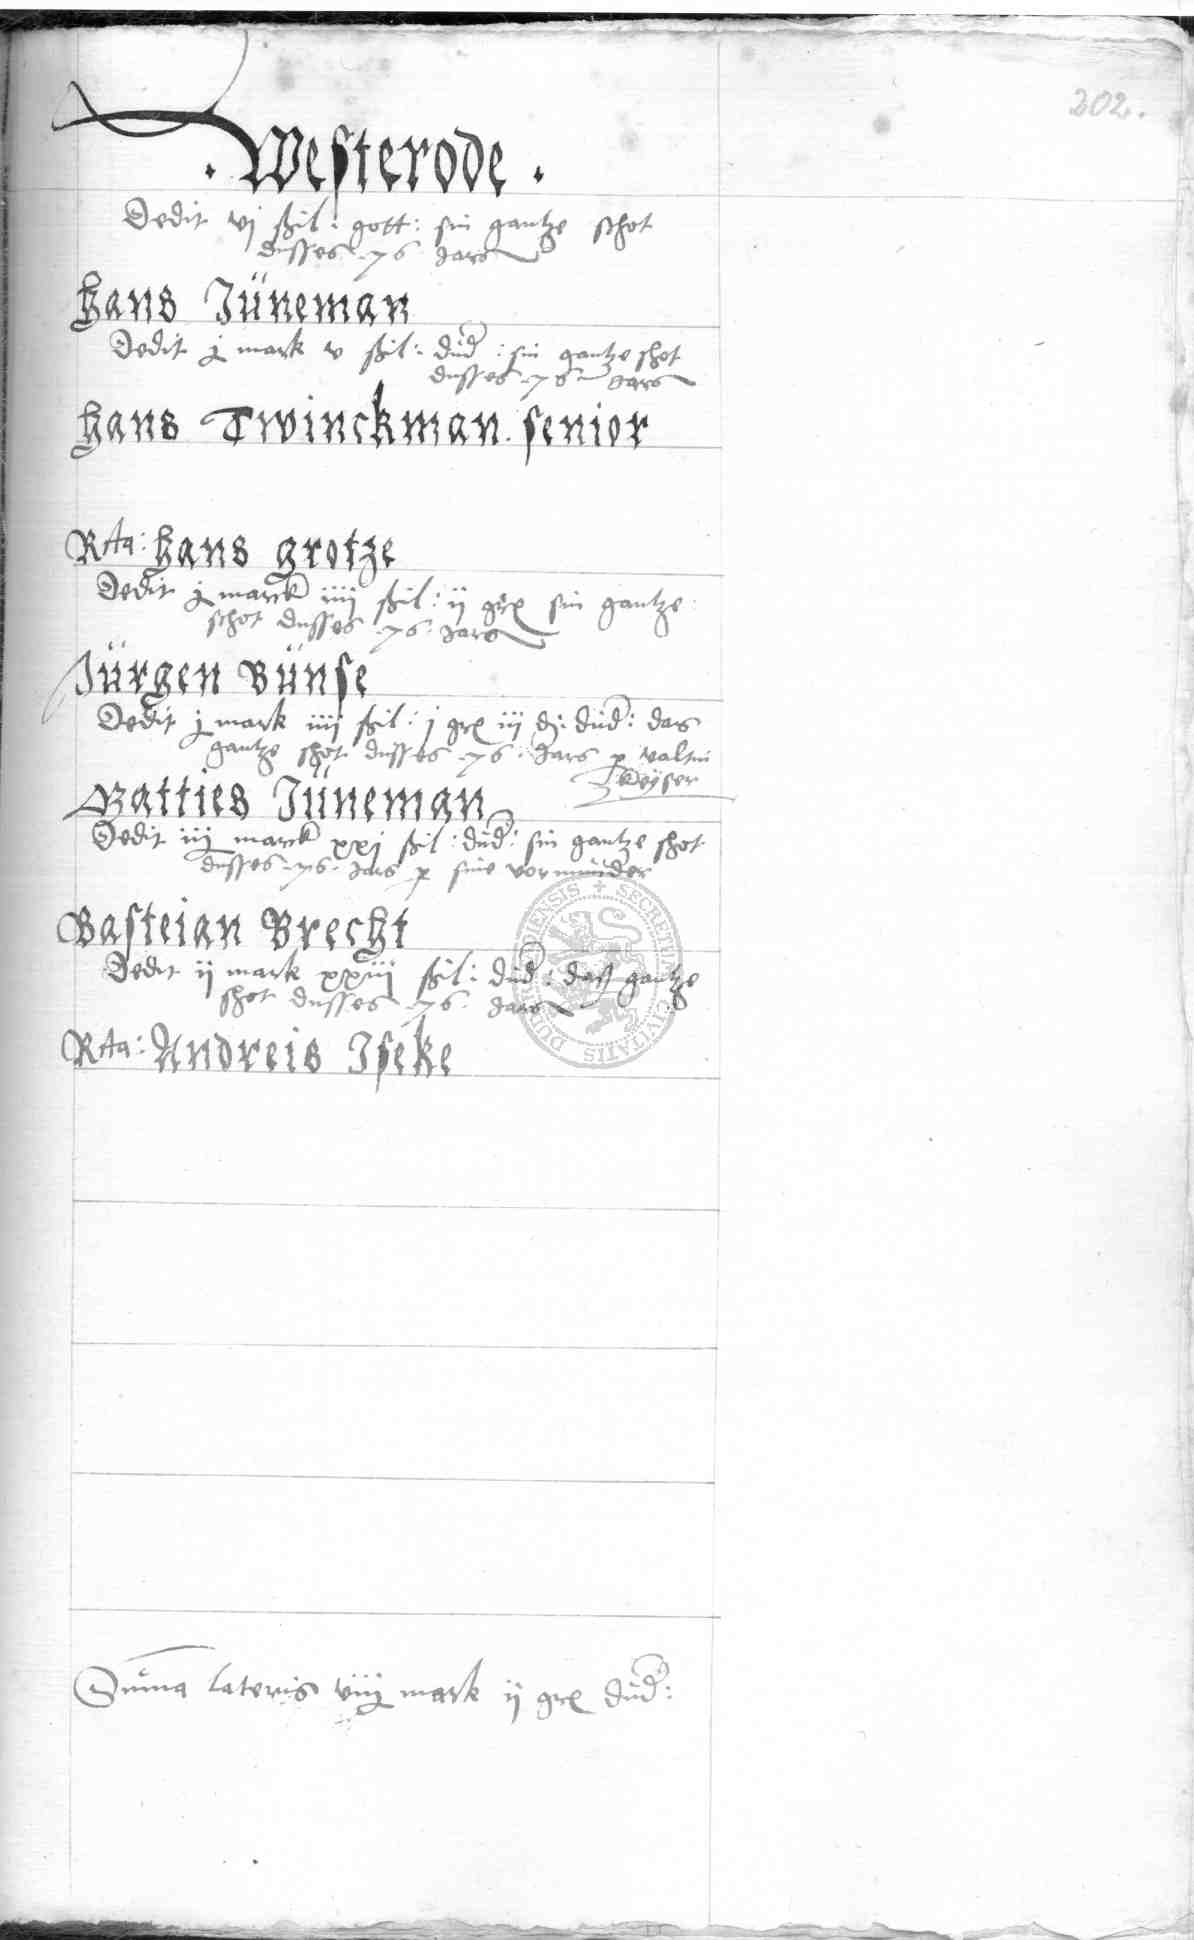 202.
. Westerode .
Dedit vj ßil: gott: sin gantze schot
dusses .76. Jars
Hans Jüneman
Dedit j mark v ßil: düd: sin gantze shot
dusses .76. Jars
Hans Twinckman senior
Rta: Hans grotze
Dedit j marck iiij ßil: ij grx sin gantze
schot dusses .76. Jars
Jürgen Bünse
Dedit j mark iiij ßil: j grx iij d: düd: das
gantze shot dusses .76. Jars p valtin
Keÿser
Matties Jüneman
Dedit iij marck xxj ßil: düd: sin gantze shot
dusses .76. Jars p sine vormünder
Basteian Brecht
Dedit ij mark xxiij ßil: düd: daß gantze
shot dusses .76. Jars
Rta: Andreis Iseke
SECRETUM CIVITATIS
Suma lateris viij mark ij grx düd: